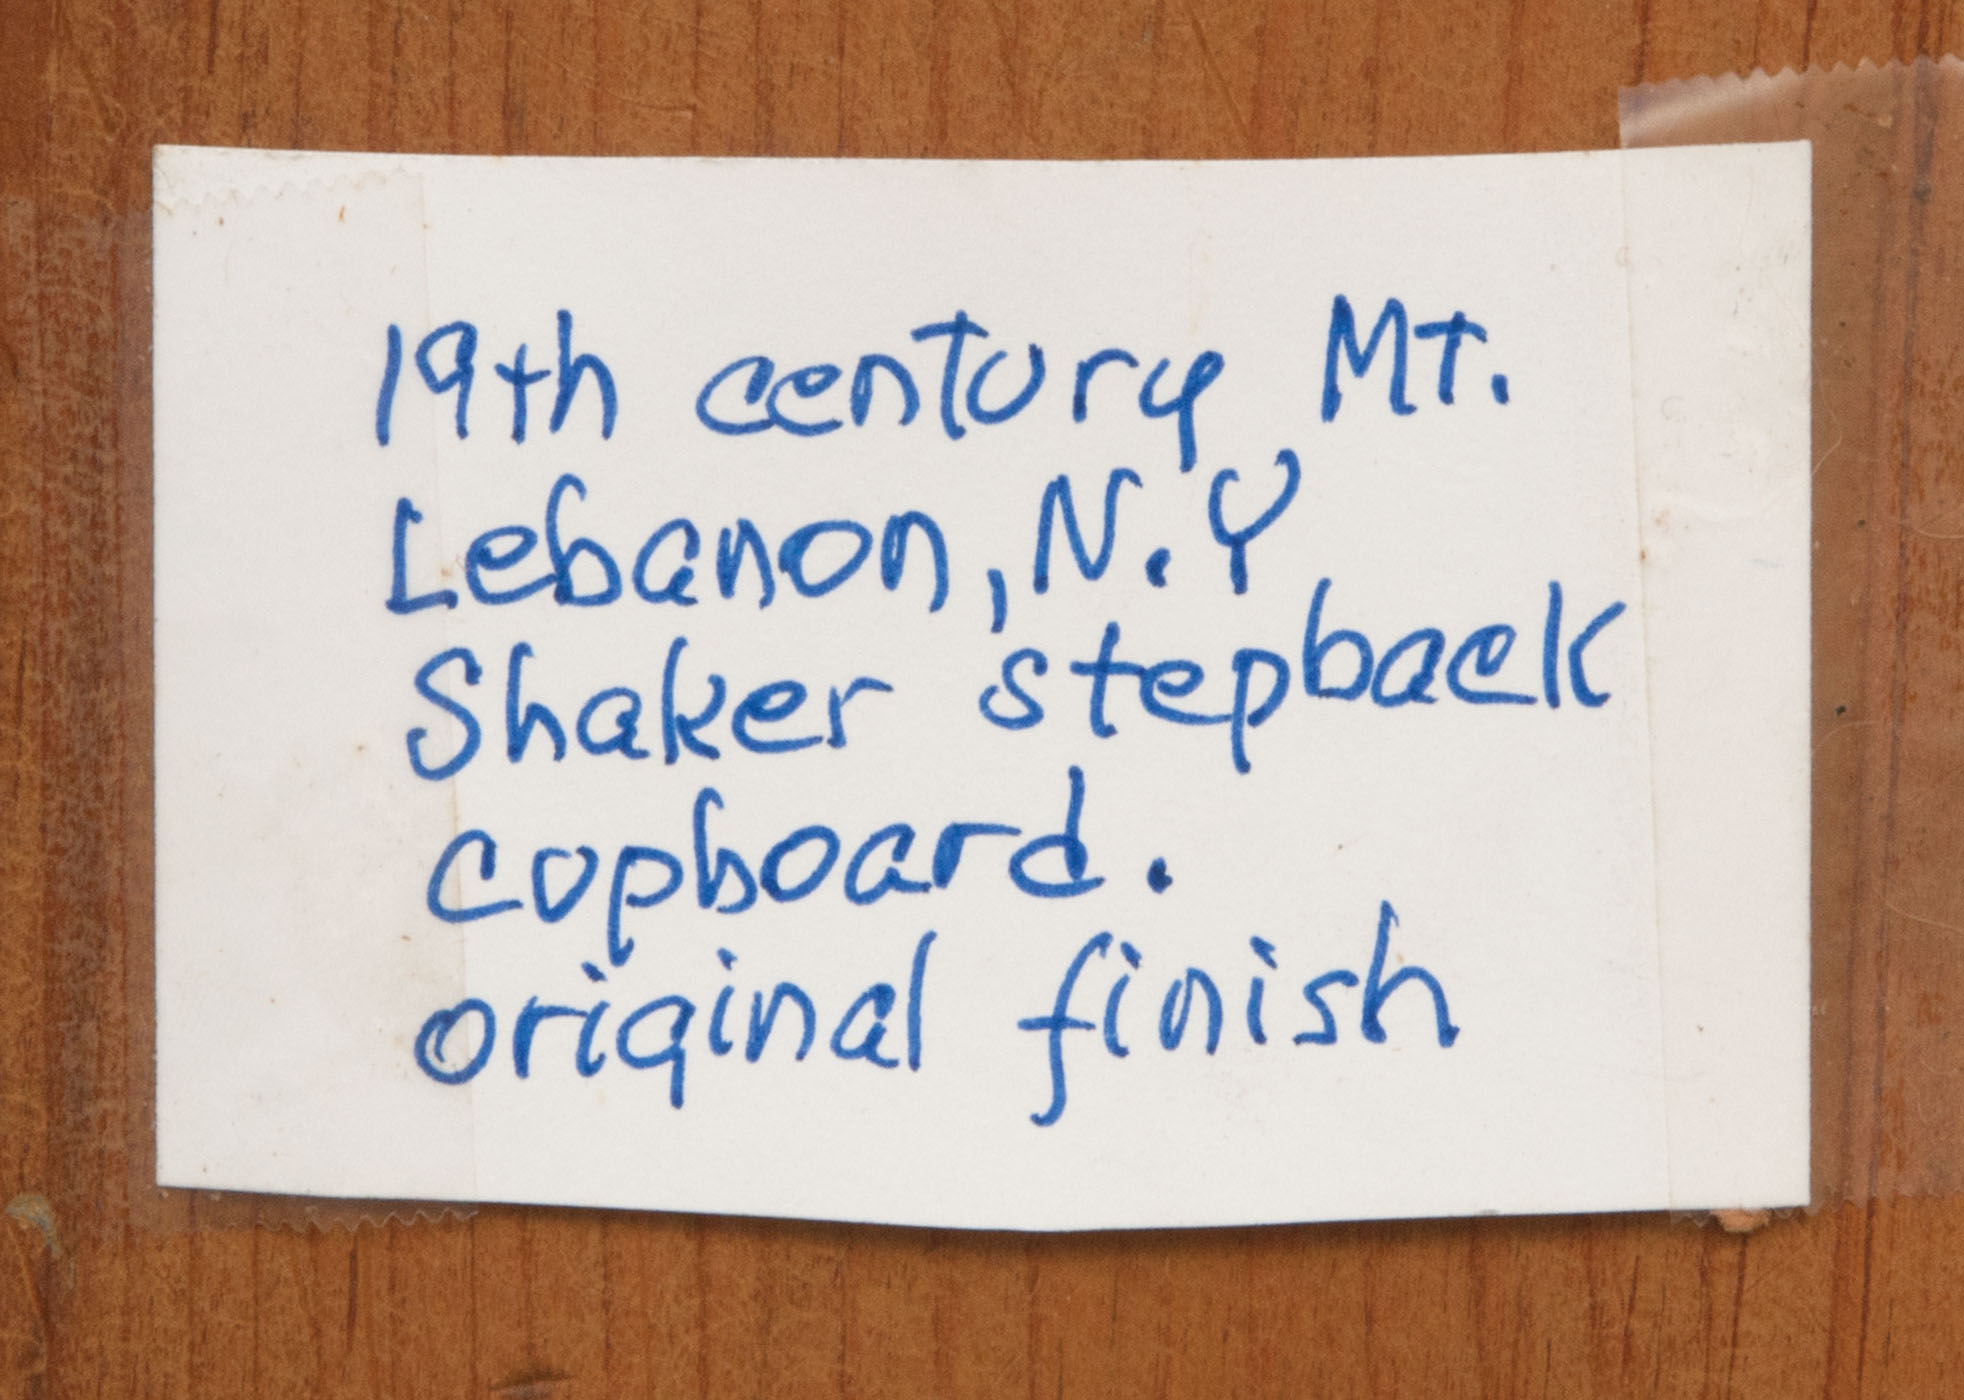 19th century Mt.
Lebanon, N.Y
Shaker stepback
cupboard.
original finish